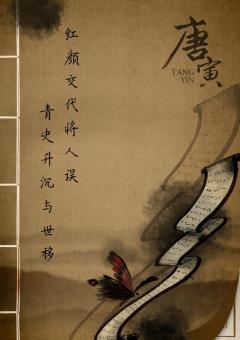 唐寅
TANG
YIN
红颜交代将人误
青史升沉与世移